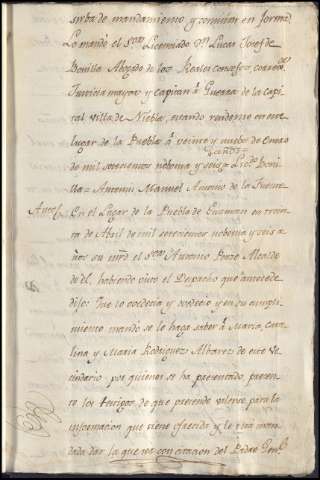 sirba de mandamiento, y comision en forma
Lo mandò el S.or Licenciado D.n Lucas Josef de
Bonilla Abogado de los Reales Consejos, correx.or
Justicia mayor y Capitan à Guerra de la Capi
tal villa de Niebla, estando residente en este
lugar de la Puebla à veinte y nueve de Enero
de mil setecientos nobenta y seis = Lic.do Boni
lla = Antemi Manuel Antonio de la Fuente
Auto
En el Lugar de la Puebla de Guzman en trein
ta de Abril de mil setecientos nobenta y seis a
ños su mrd. el S.or Antonio Ponze Alcalde
de èl, habiendo visto el Despacho que antecede
dijo: Que lo ovedecia y ovedecio y en su cumpli
miento mando se le haga saber à Maria, Cata
lina y Maria Rodriguez Albarez de este Ve
cindario por quienes se ha presentado, presen
te los testigos, de que pretende valerse para la
informacion que tiene ofrecida y le está man
dada dar la que sea con citacion del Pedro Gonz.